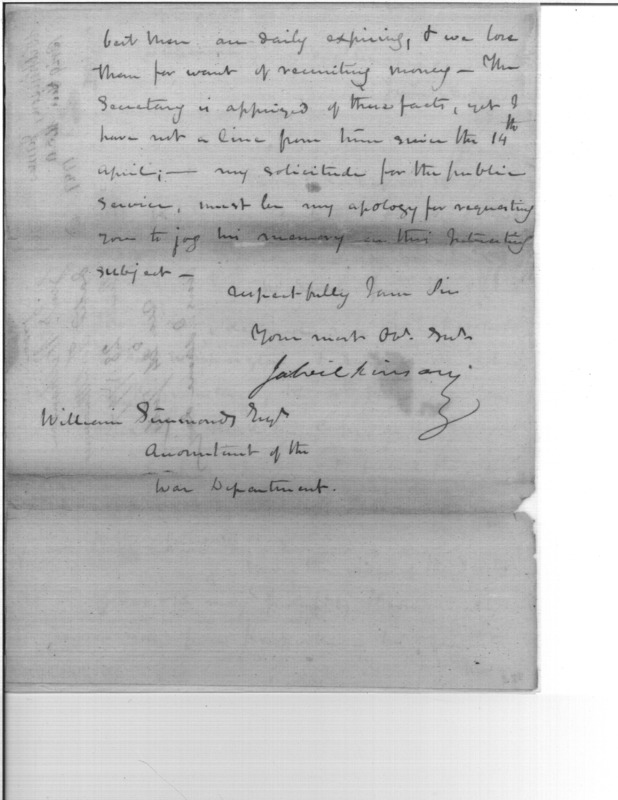 best men are daily expiring, & we lose
them for want of recruiting money — The
Secretary is apprized of these facts, yet I
have not a line from him since the 14th
April; — my solicitude for the public
service, must be my apology for requesting
you to jog his memory on this interesting
subject —
respectfully I am Sir
Your most Ob. Svt
Ja Wilkinson
William Simmonds Esqr
Accountant of the
War Department.